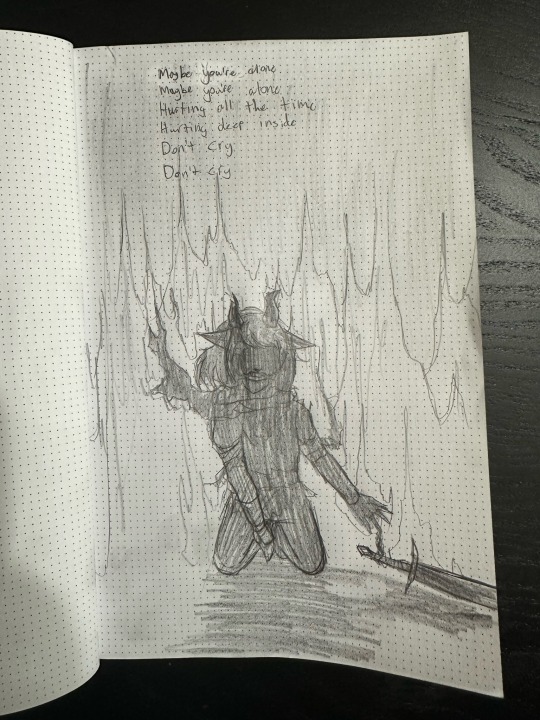 Maybe you're alone
Maybe you're alone
Hurting all the time
Hurting deep inside
Don't cry
Don't cry